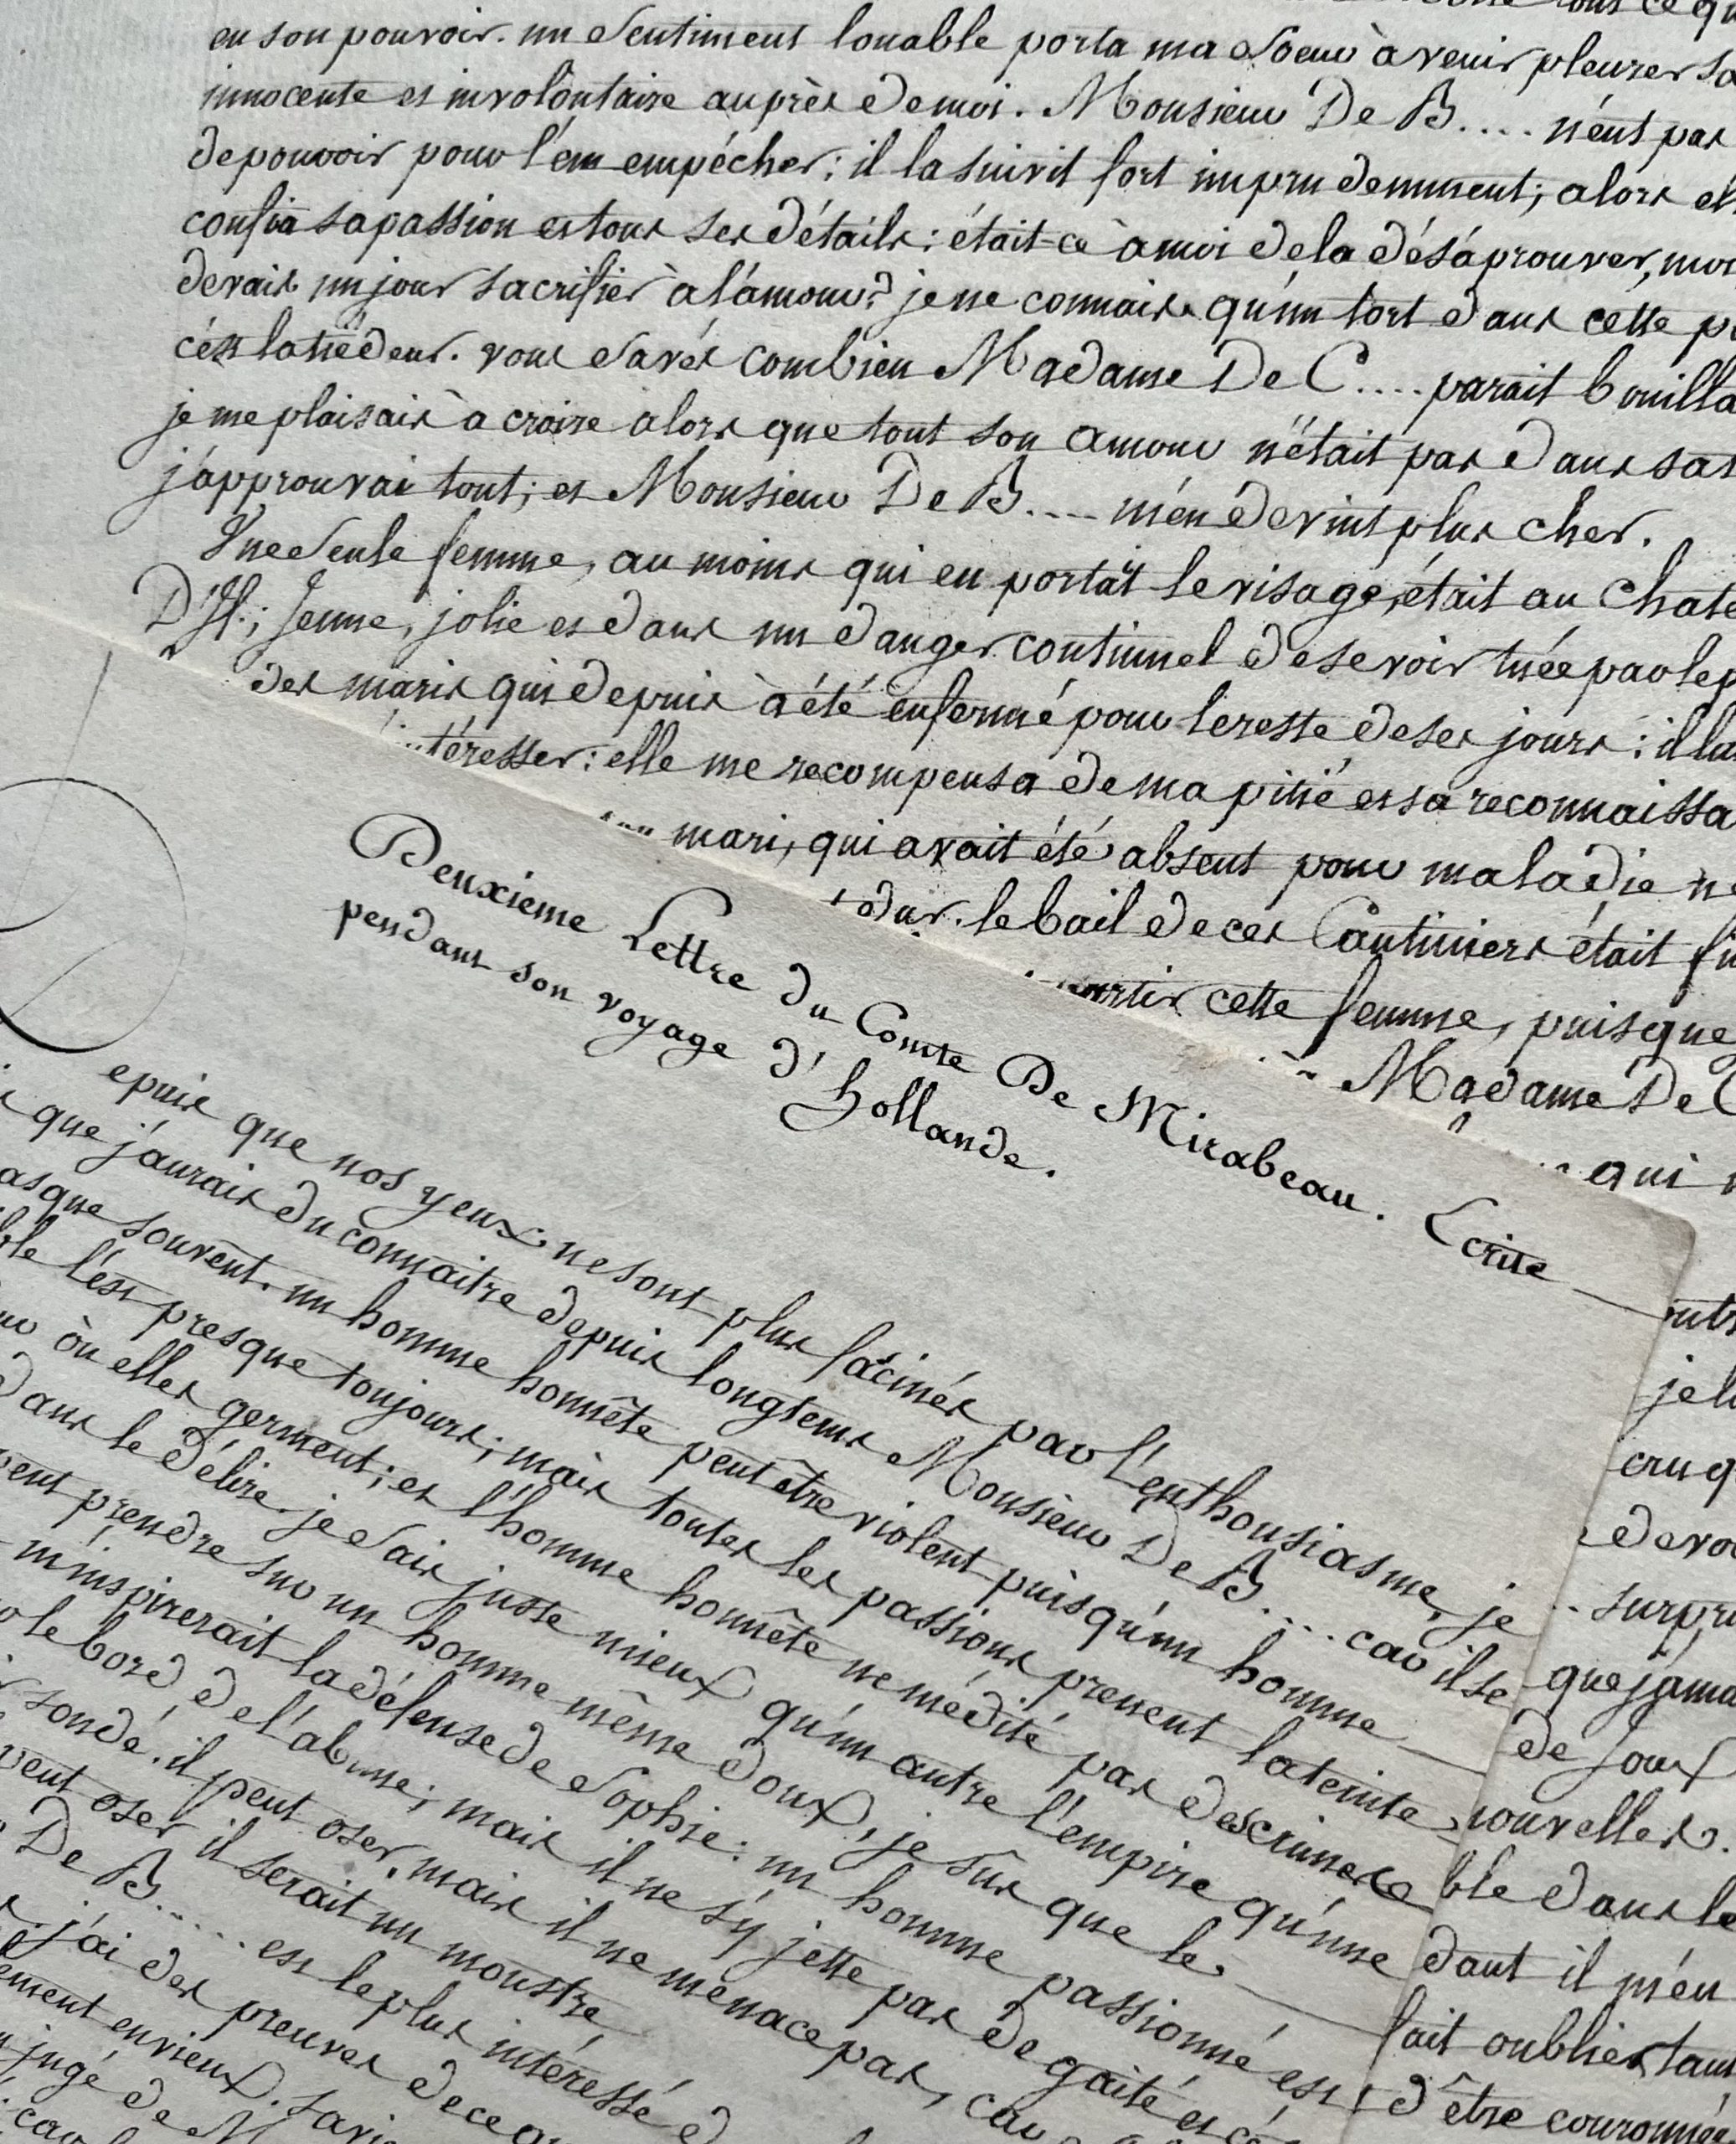 en son pouvoir. un sentiment louable porta ma soeur à venir pleurer sa
innocente et involontaire auprès de moi. Monsieur De B.... n'eut pas
de pouvoir pour l'em empécher; il la suivit fort imprudemment; alors el
confia sa passion et tous ses détails: était-ce à moi de la désaprouver, moi
devais un jour sacrifier à l'amour? je ne connais qu'un tort dans cette p
c'est la tiédeur. vous savés combien Madame De C.... parait bouilla
je me plaisais à croire alors que tout son amour n'était pas dans sa t
j'approuvai tout; et Monsieur De B.... m'en devint plus cher.
Une seule femme, au moins qui en portât le visage, était au Chate
D'If.; Jeune, jolie et dans un danger continuel de se voir tuée par le p
des maris qui depuis à été enfermé pour le reste de ses jours: il la
intéresser: elle me recompensa de ma pitié et sa reconnaissa
son mari, qui avait été absent pour maladie n
le bail de ces Cantiniers était fi
partir cette femme, puisque
à Madame De C
qui
Deuxieme Lettre du Comte De Mirabeau. Ecrite
pendant son voyage d'hollande.
Depuis que nos yeux ne sont plus facinés par l'enthousiasme, je
que j'aurais du connaitre depuis longtems Monsieur De B.... car il se
asque souvent. un homme honnête peut être violent puisqu'un homme
ble l'est presque toujours; mais toutes les passions prenent la teinte
où elles germent; et l'homme honnête ne médite pas des crimes
dans le délire. je sais juste mieux qu'un autre l'empire qu'une
peut prendre sur un homme même doux, je sûr que le
m'inspirerait la défense de Sophie: un homme passionné est
le bord de l'abime; mais il ne s'y jette pas de gaité et
sondé. il peut oser, mais il ne menace pas, car
peut oser il serait un monstre
De B.... est le plus intéressé d
j'ai des preuves de ce qu
ement envieux.
jugé de M
car
je l
cru q
devo
surpr
que jama
de Joux
nouvelles.
ble dans le
dant il m'en
fait oublier tant
d'être couronné